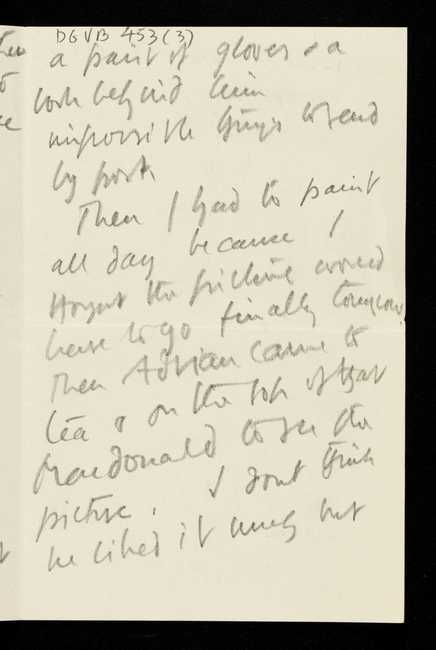 DGVB 453(3)
a pair of gloves & a
book behind him
impossible things to send
by post
Then I had to paint
all day because I
thought the picture would
have to go finally tomorrow.
Then Adrian came to
tea & on the top of that
Macdonald to see the
picture. I dont think
he liked it much but